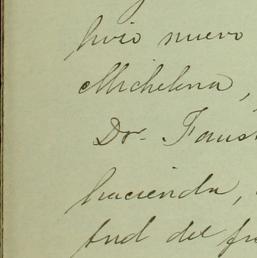 nuevo
Michelena,
Dr. Faust
hacienda,
tud del fu